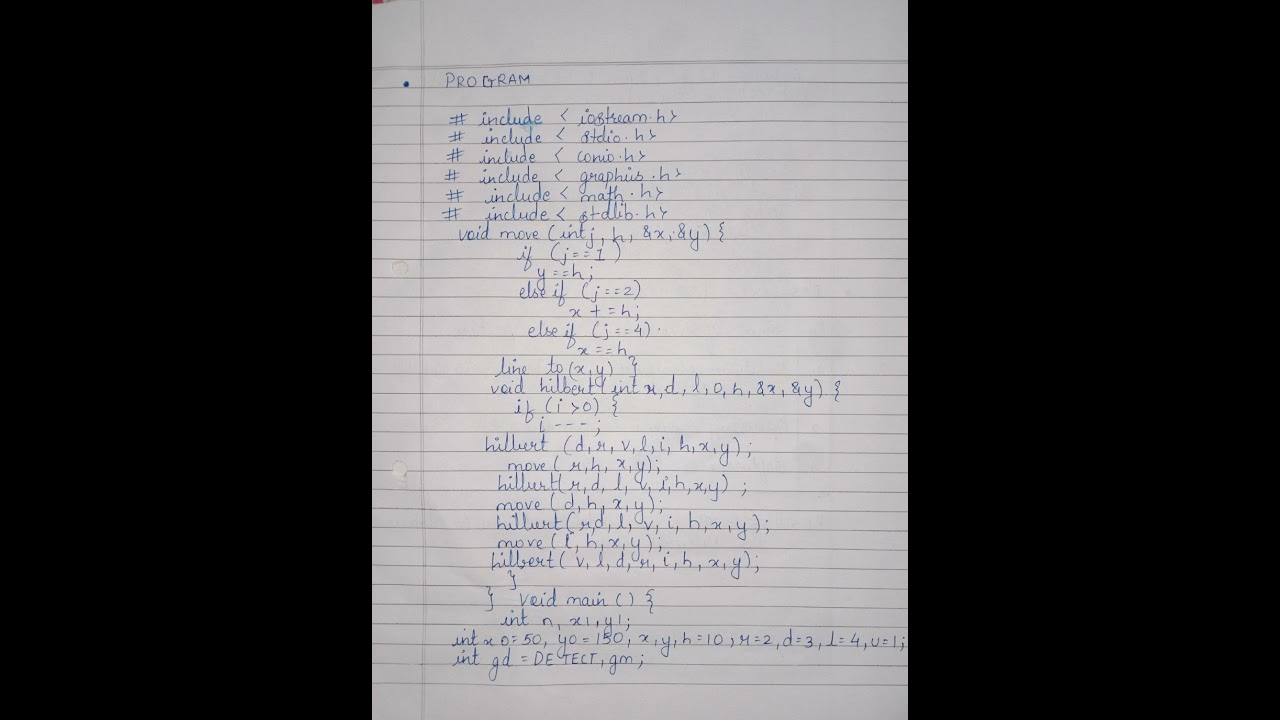 PROGRAM
# include < iostream.h>
# include < stdio.h>
# include < conio.h>
# include < graphics.h>
# include < math.h>
# include < stdlib.h>
void move (int j, h, &x, &y) {
if (j==1)
y==h;
else if (j==2)
x+=h;
else if (j==4)
x==h
line to(x,y) }
void hilbert(int r,d,l,0,h,&x,&y) {
if (i>0) {
i---;
hilbert (d,r,v,l,i,h,x,y);
move( r,h, x,y);
hilbert(r,d, l, v, i,h,x,y) ;
move (d,h, x,y);
hilbert(r,d, l, v, i, h, x, y );
move(l, h, x,y);
hilbert( v, l, d, r, i, h, x, y);
}
} void main () {
int n, x1,y1;
int x0=50, y0=150, x,y,h=10,r=2,d=3,l=4,u=1;
int gd = DETECT,gm;